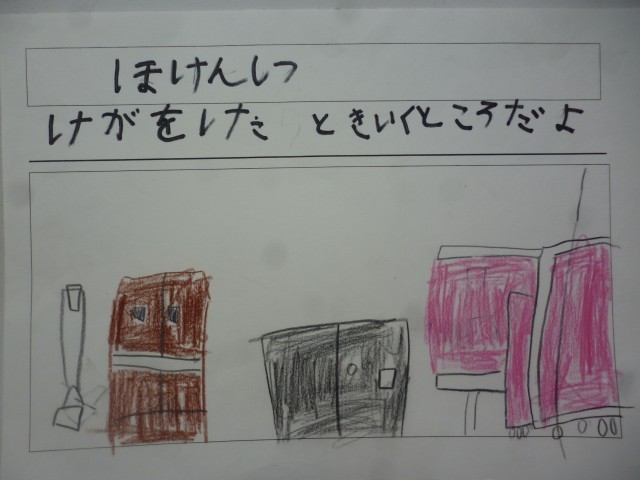 ほけんしつ
けがをしたときいくところだよ